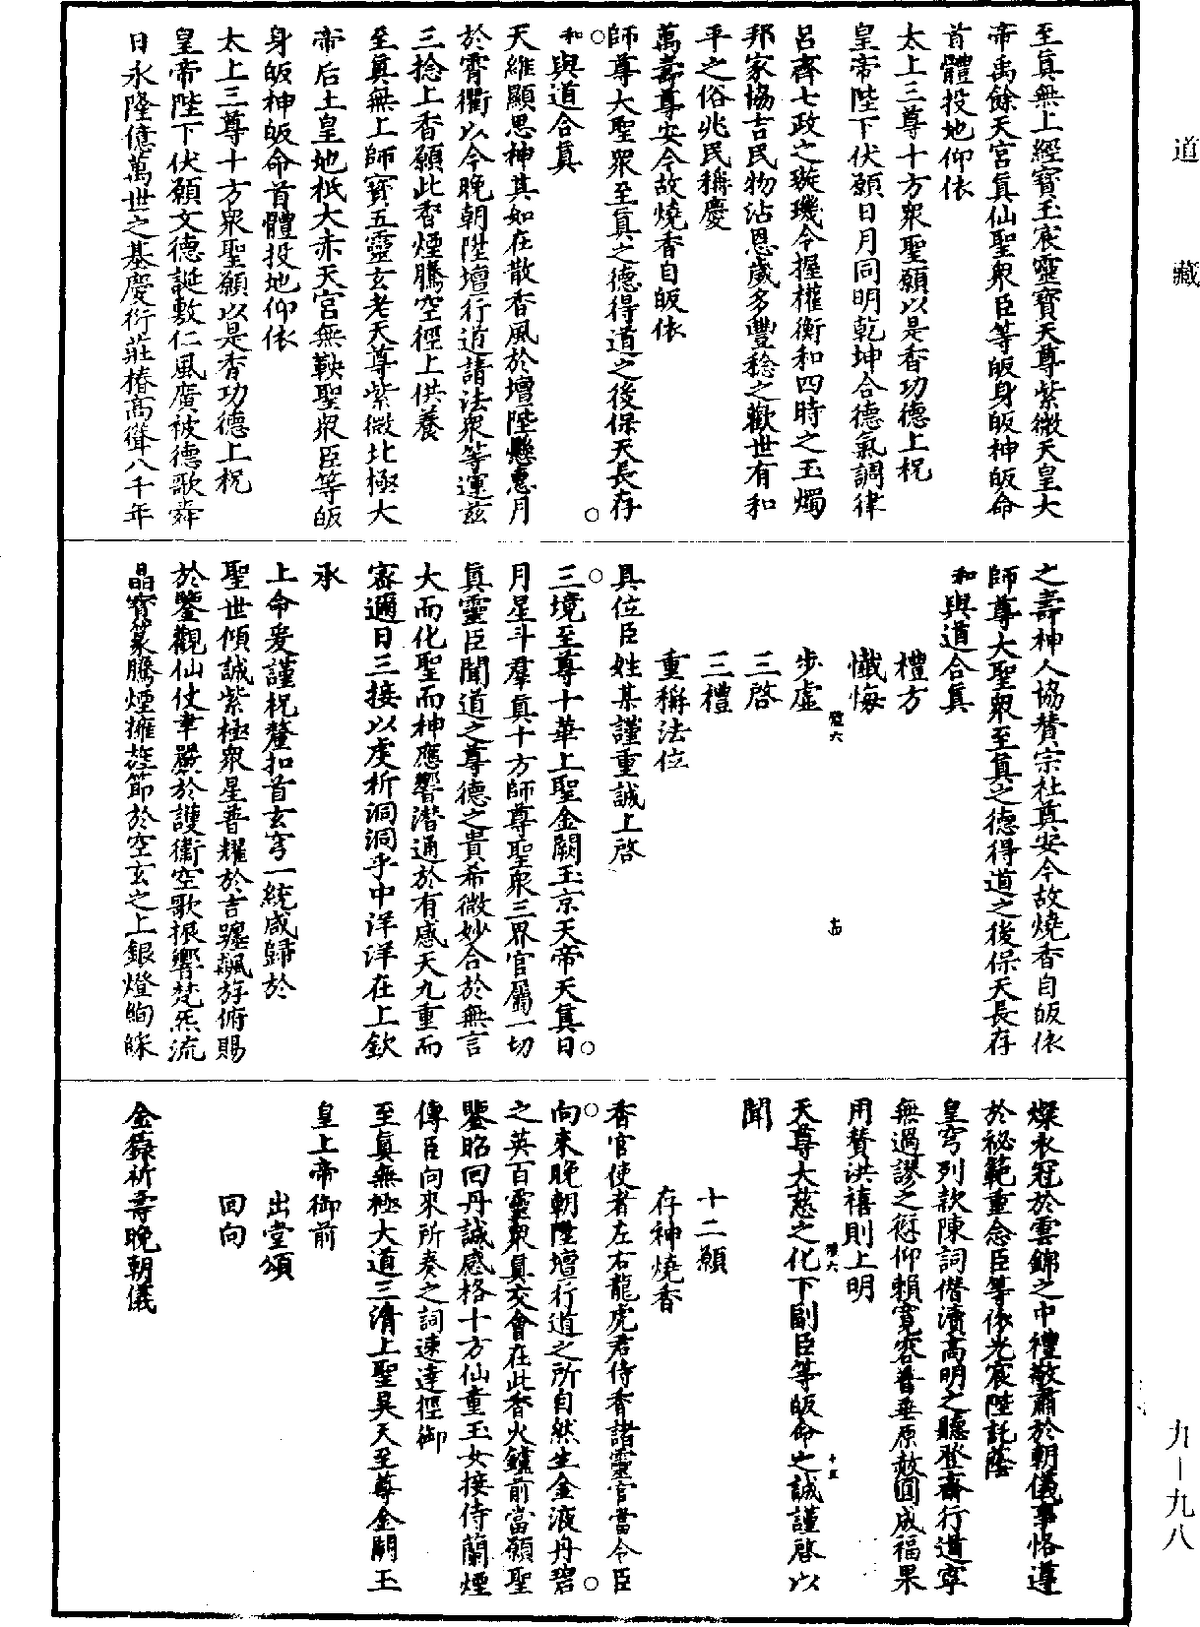 道藏
九—九八
至眞無上經寶玉宸靈寶天尊紫微天皇大
帝禹餘天宮眞仙聖衆臣等皈身皈神皈命
首體投地仰依
太上三尊十方衆聖願以是香功德上祝
皇帝陛下伏願日月同明乾坤合德氣調律
呂齊七政之璇璣令握權衡和四時之玉燭
邦家協吉民物沾恩歲多豐稔之歡世有和
平之俗兆民稱慶
萬壽尊安今故燒香自皈依
師尊大聖衆至眞之德得道之後保天長存
和與道合眞
天維顯思神其如在散香風於壇陛懸惠月
於霄衢以今晚朝陞壇行道請法衆等運茲
三捻上香願此香煙騰空徑上供養
至眞無上師寶五靈玄老天尊紫微北極大
帝后土皇地祇大赤天宮無鞅聖衆臣等皈
身皈神皈命首體投地仰依
太上三尊十方衆聖願以是香功德上祝
皇帝陛下伏願文德誕敷仁風廣被德歌舜
日永隆億萬世之基慶衍莊椿高聳八千年
之壽神人協贊宗社奠安今故燒香自皈依
師尊大聖衆至眞之德得道之後保天長存
和與道合眞
禮方
懺悔
步虛
三啓
三禮
重稱法位
具位臣姓某謹重誠上啓
三境至尊十華上聖金闕玉京天帝天眞日
月星斗羣眞十方師尊聖衆三界官屬一切
眞靈臣聞道之尊德之貴希微妙合於無言
大而化聖而神應響潛通於有感天九重而
密邇日三接以虔祈洞洞乎中洋洋在上欽
承
上命爰謹祝釐扣首玄穹一統咸歸於
聖世傾誠紫極衆星普耀於吉躔飆斿俯賜
於鑒觀仙仗聿嚴於護衞空歌振響梵炁流
晶寶篆騰煙擁旌節於空玄之上銀燈絢綵
燦衣冠於雲錦之中禮敬肅於朝儀事恪遵
於祕範重念臣等依光宸陛託蔭
皇穹列款陳詞僭瀆高明之聽登齋行道寧
無過謬之愆仰賴寬容普垂原赦圓成福果
用贊洪禧則上明
天尊大慈之化下副臣等皈命之誠謹啓以
聞
十二願
存神燒香
香官使者左右龍虎君侍香諸靈官當令臣
向來晚朝陞壇行道之所自然生金液丹碧
之英百靈衆眞交會在此香火鑪前當願聖
鑒昭回丹誠感格十方仙童玉女接侍蘭煙
傳臣向來所奏之詞速達徑御
至眞無極大道三清上聖昊天至尊金闕玉
皇上帝御前
出堂頌
回向
金籙祈壽晚朝儀